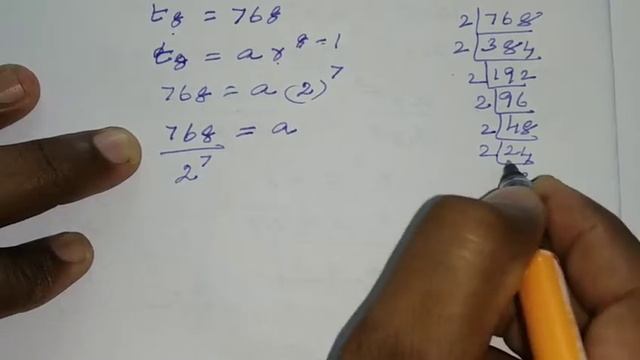 t₈ = 768
t₈ = a r⁸⁻¹
768 = a (2)⁷
768/2⁷ = a
2 | 768
2 | 384
2 | 192
2 | 96
2 | 48
2 | 24